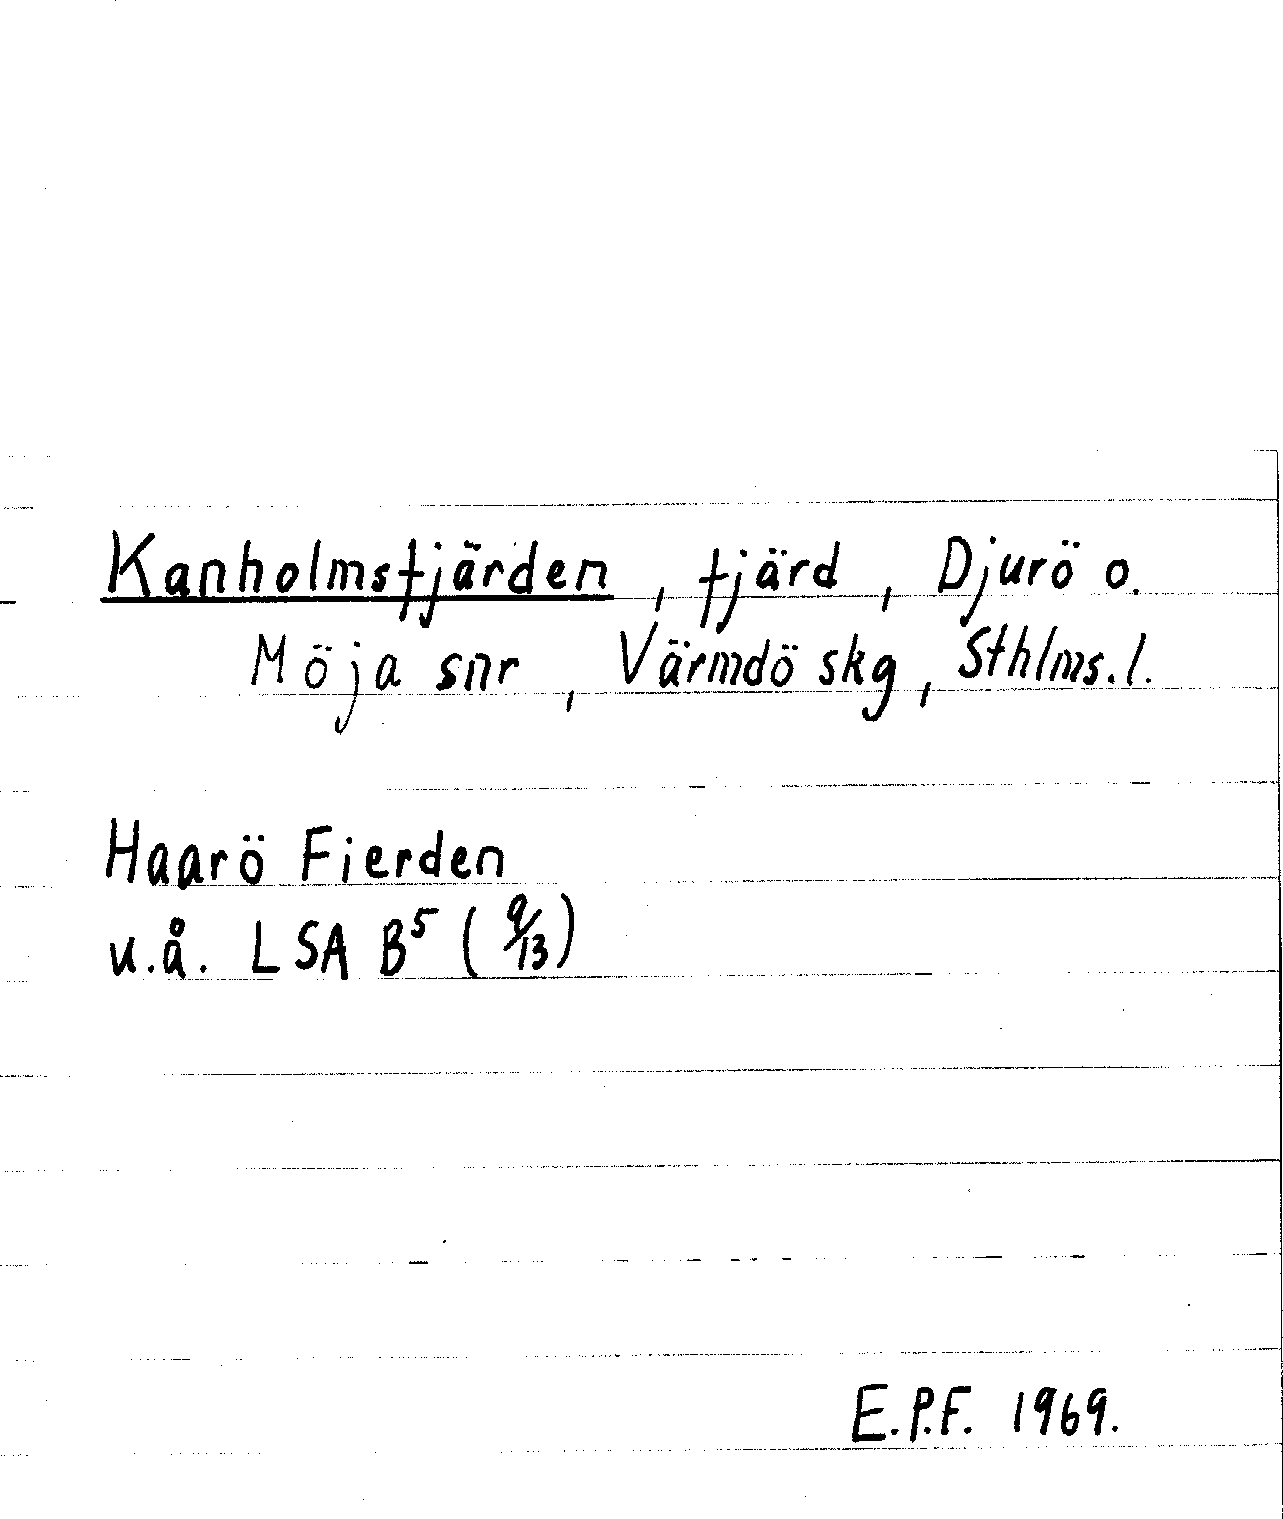 Kanholmsfjärden, fjärd, Djurö o.
Möja snr, Värmdö skg, Sthlms. l.
Haarö Fierden
u.å. LSA B⁵ (9/13)
E.P.F. 1969.